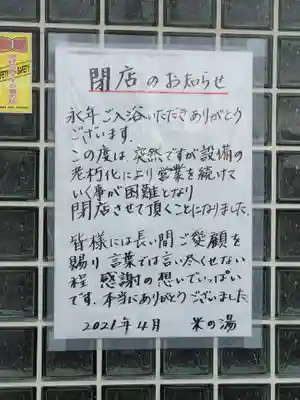 閉店のお知らせ
永年ご入浴いただきありがとう
ございます.
この度は突然ですが設備の
老朽化により営業を続けて
いく事が困難となり
閉店させて頂くことになりました.
皆様には長い間ご愛顧を
賜り言葉では言い尽くせない
程 感謝の想いでいっぱい
です.本当にありがとうございました
2021年4月 米の湯